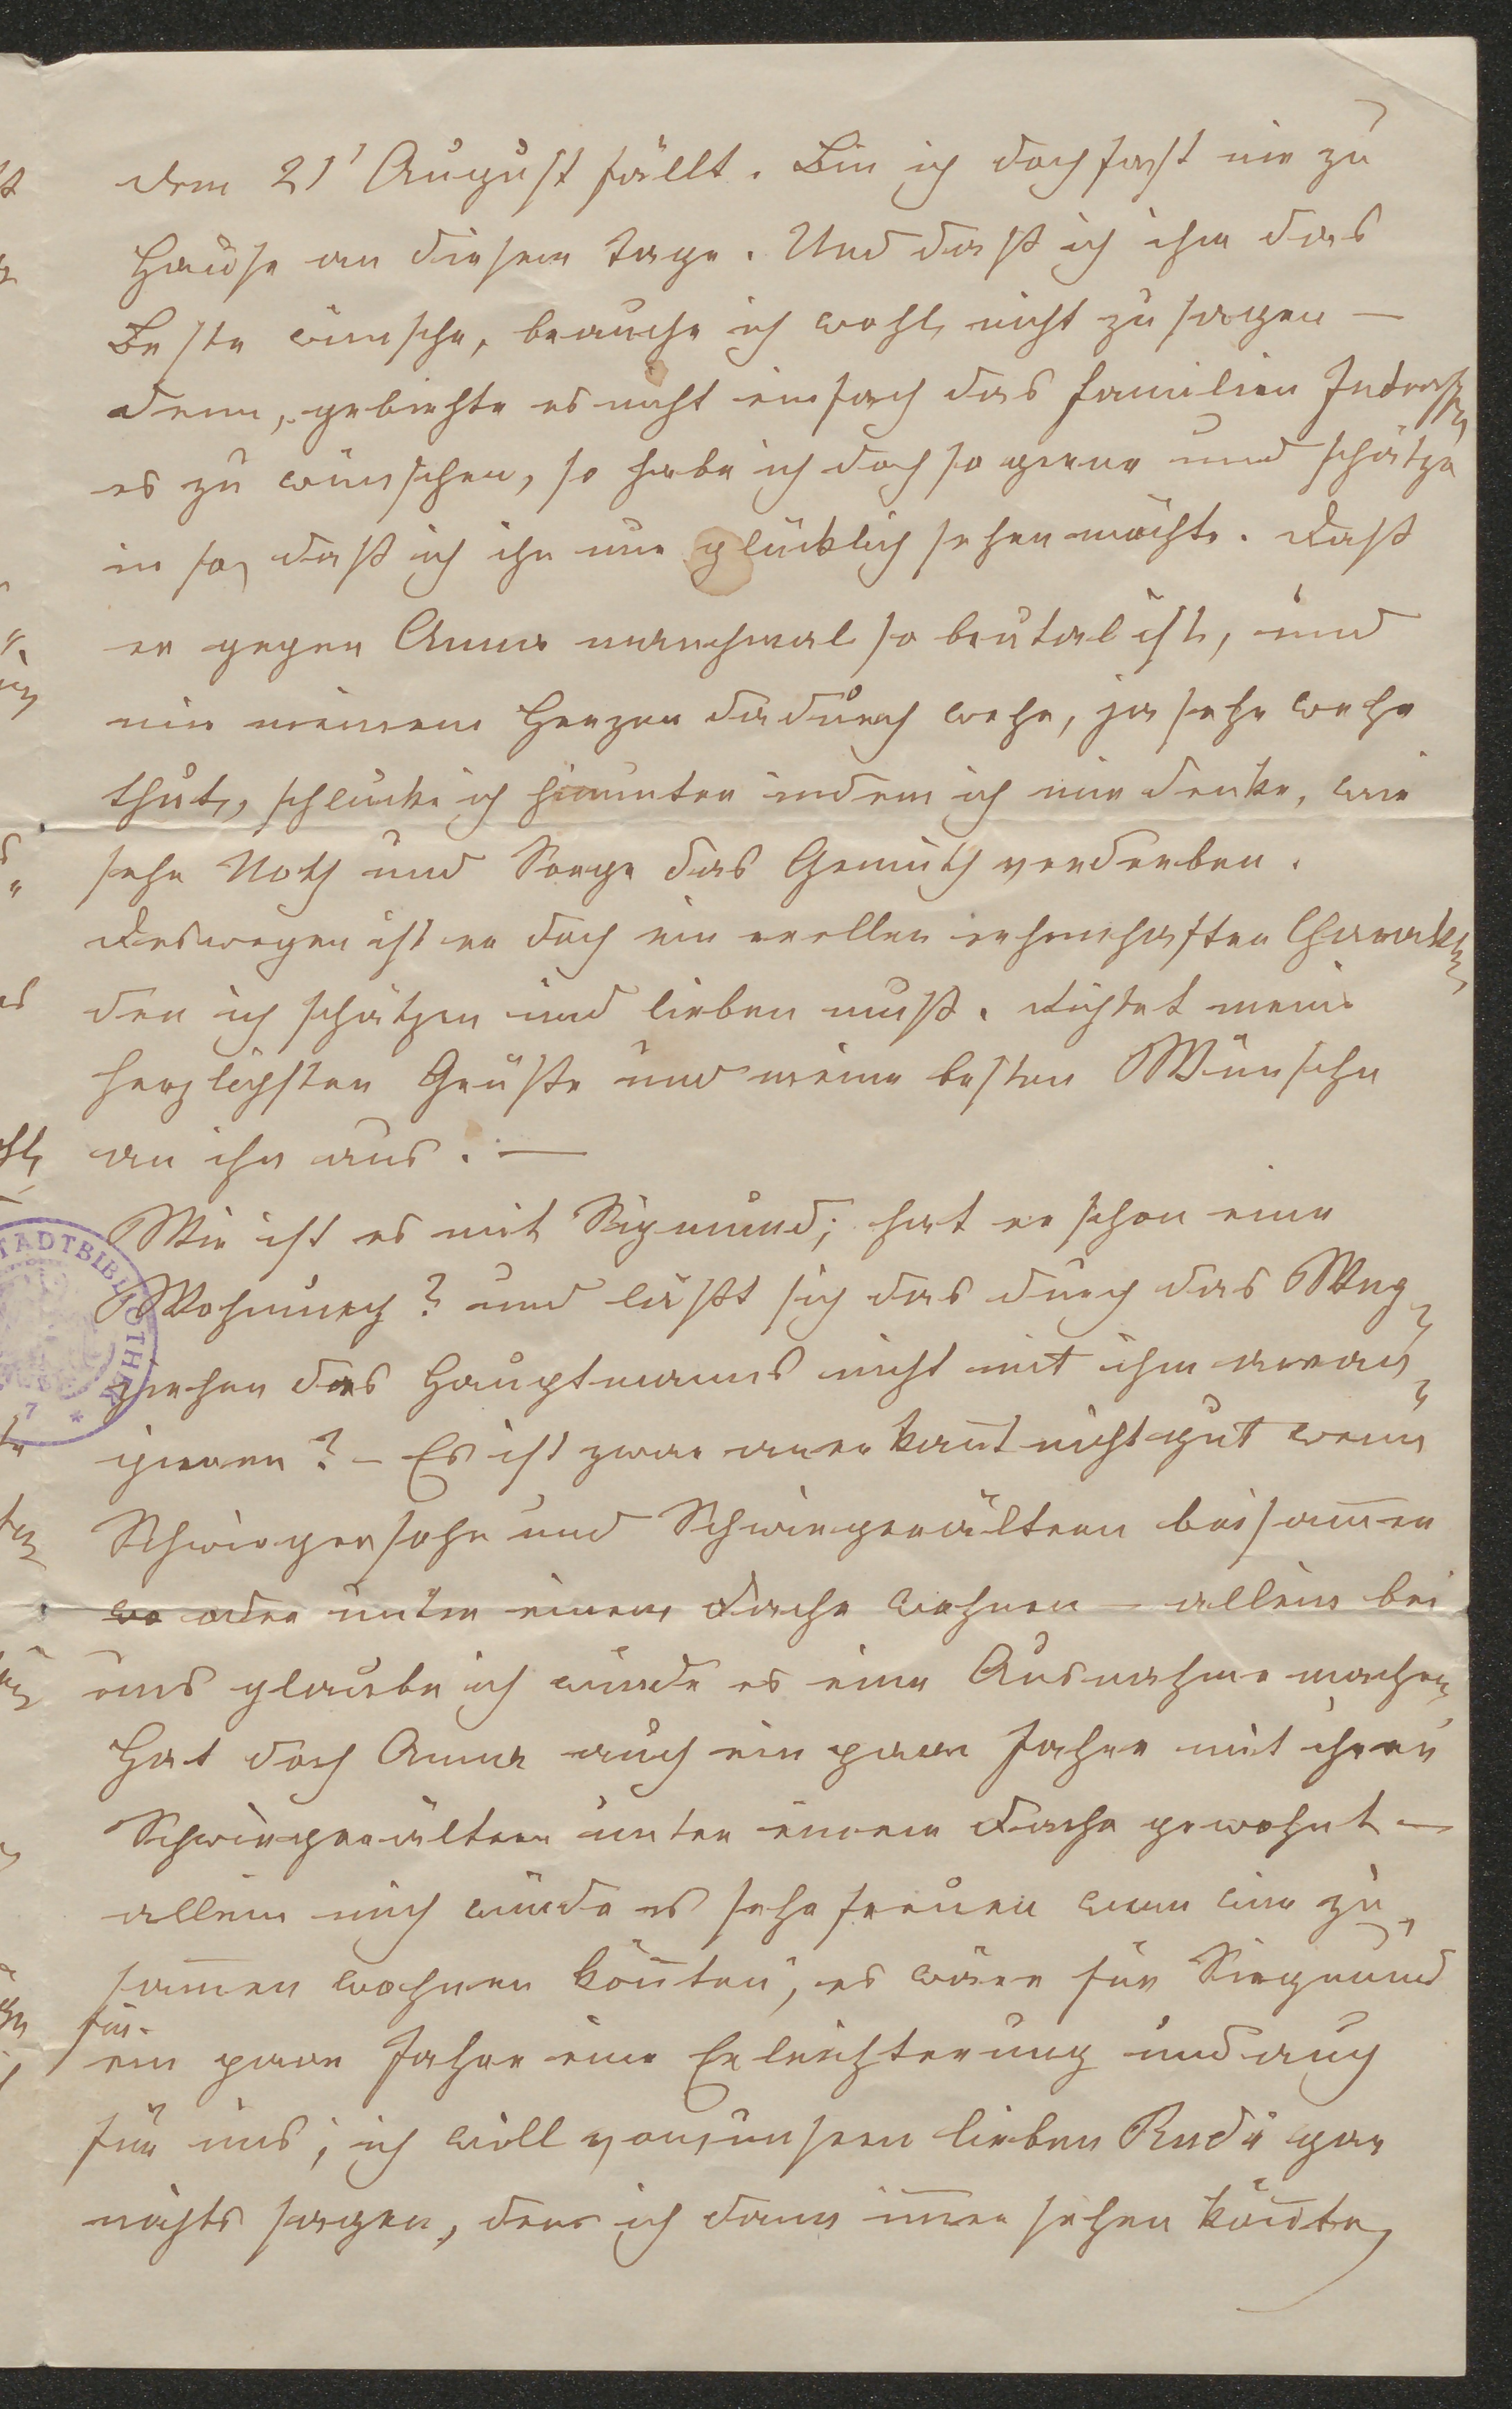 dem 21' August fällt. Bin ich doch fast nie zu
Hause an diesem Tage. Und daß ich ihm das
Beste wünsche, brauche ich wohl nicht zu sagen —
denn, gebiethe es nicht einfach das Familien Interesse
es zu wünschen, so habe ich doch so gerne und schätze
in so, daß ich ihn nur glücklich sehen möchte. Daß
er gegen Anna manchmal so brutal ist, und
mir meinem Herzen dadurch wehe, ja sehr wehe
thut, schlucke ich hinunter indem ich mir denke, wie
sehr Noth und Sorge das Gemüth verderben.
Deswegen ist er doch ein reeller ehrenhafter Charakter
den ich schätzen und lieben muß. Richtet meine
herzlichsten Grüße und meine besten Wünsche
an ihn aus. —
Wie ist es mit Sigmund; hat er schon eine
Wohnung? und läßt sich das durch das Weg-
ziehen des Hauptmanns nicht mit ihm arran-
giren? — Es ist zwar anerkannt nicht gut wenn
Schwiegersohn und Schwiegerältern beisammen
wo oder unter einem Dache wohnen — allein bei
uns glaube ich würde es eine Ausnahme machen
Hat doch Anna auch ein paar Jahre mit ihren
Schwiegerältern unter einem Dache gewohnt —
allein mich würde es sehr freuen wenn wir zu-
sammen wohnen könnten, es wäre für Siegmund
für
ein paar Jahre eine Erleichterung und auch
für uns; ich will von unserm lieben Rudi gar
nichts sagen, den ich dann immer sehen könnte,
STADTBIBLIOTHEK
7 *